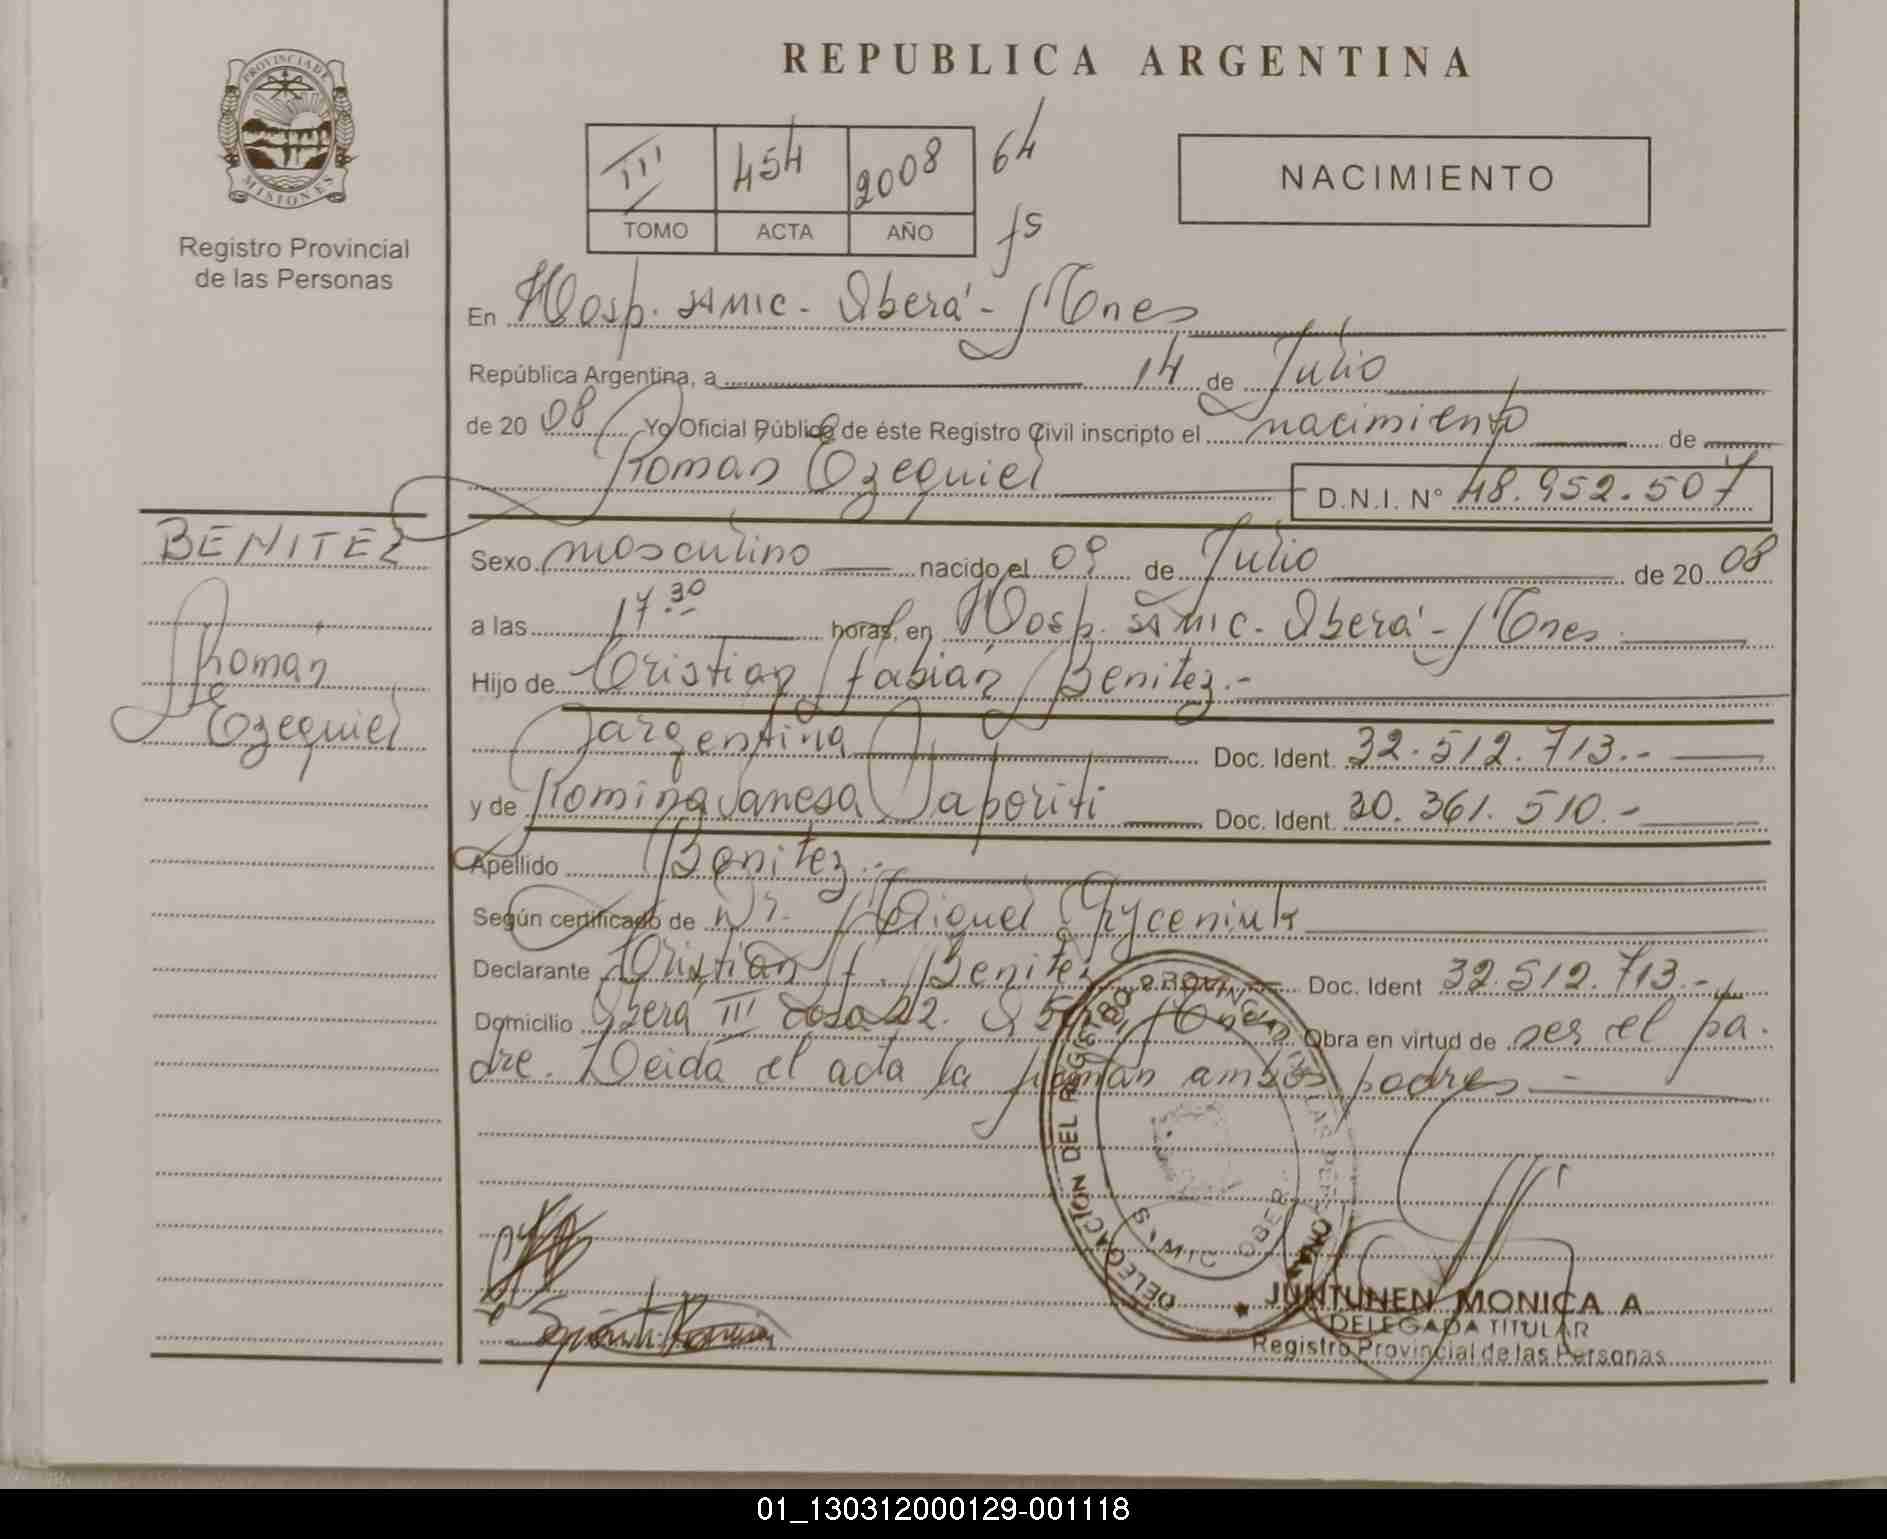 REPUBLICA ARGENTINA
PROVINCIA DE
MISIONES
Registro Provincial
de las Personas
III 454 2008 64
TOMO ACTA AÑO fs
NACIMIENTO
En Hosp. SAMIC - Oberá - Mnes
República Argentina, a 14 de Julio
de 2008 Yo Oficial Público de éste Registro Civil inscripto el nacimiento de
Roman Ezequiel D.N.I. N° 48.952.507
BENITEZ
Roman
Ezequiel
Sexo masculino nacido el 09 de Julio de 2008
a las 17.30 horas, en Hosp. SAMIC - Oberá - Mnes
Hijo de Cristian Fabián Benitez.-
argentina Doc. Ident. 32.512.713.-
y de Romina Vanesa Saporiti Doc. Ident. 30.361.510.-
Apellido Benitez.-
Según certificado de Dr. Miguel Gryceniuk
Declarante Cristian F. Benitez Doc. Ident 32.512.713.-
Domicilio Oberá III Casa 22. Mnes Obra en virtud de ser el pa.
dre. Leida el acta la firman ambos padres -
DELEGACION DEL REGISTRO PROVINCIAL DE LAS PERSONAS
SAMIC OBERA
JUNTUNEN MONICA A
DELEGADA TITULAR
Registro Provincial de las Personas
01_130312000129-001118